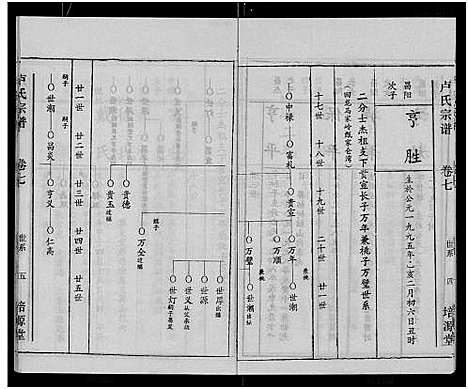 卢氏宗谱 卷七 世系 四 培源堂
昌阳
次子
亨胜
生於公元一九九五年乙亥二月初六日丑时
二分士杰祖支下贵宣长子万年兼祧子万璧世系
十七世 十八世 十九世 二十世 廿一世
中禄 富礼 贵宣 万年 世潮
兼祧
万顺
万璧 世潮
兼祧
贵德 万全 过继 世厚 出继
继子
世源
世义
世灯
贵玉 过继
廿一世 廿二世 廿三世 廿四世 廿五世
世潮 昌炎 亨义 仁高
嗣子 嗣子
卢氏宗谱 卷七 世系 五 培源堂